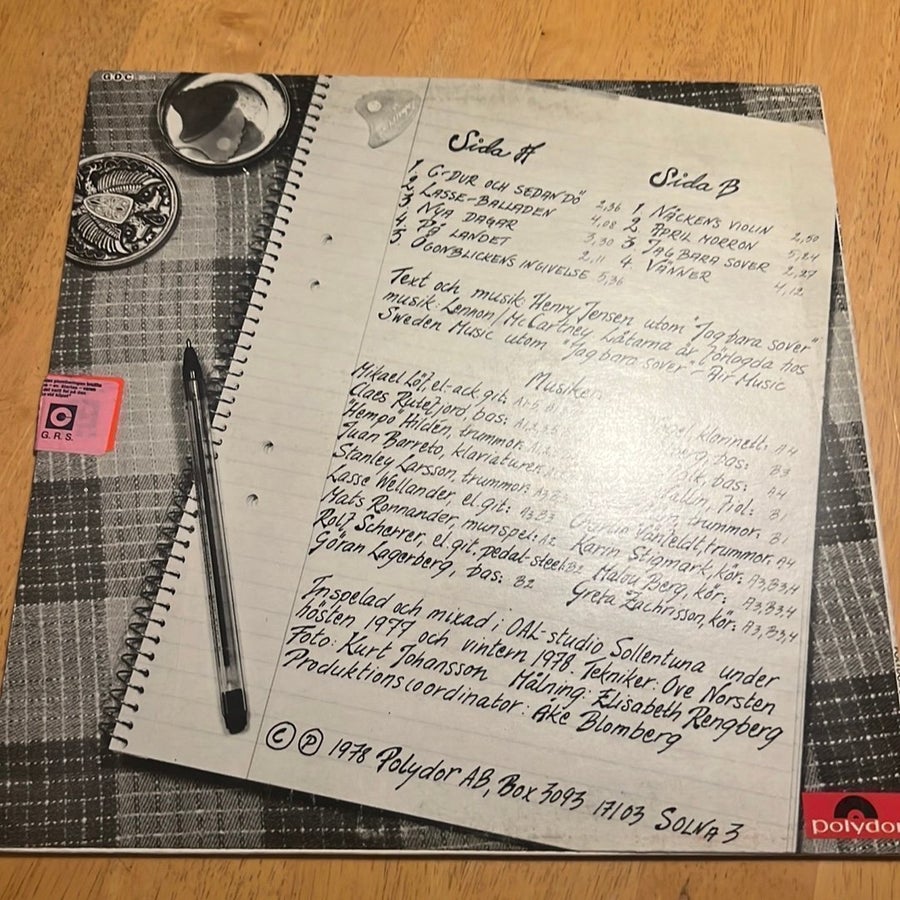 GDC
Sida A
1. G-DUR OCH SEDAN DÖ 2,36
2. LASSE-BALLADEN 4,08
3. NYA DAGAR 3,30
4. PÅ LANDET 2,11
5. ÖGONBLICKENS INGIVELSE 5,36
Sida B
1. NÄCKENS VIOLIN 2,50
2. APRIL MORRON 5,24
3. JAG BARA SOVER 2,27
4. VÄNNER 4,12
Text och musik: Henry Jensen utom "Jag bara sover"
musik: Lennon/McCartney. Låtarna är förlagda hos
Sweden Music utom "Jag bara sover" - Air Music
Musiker:
Mikael Löf, el-ack.git:
Claes Rutefjord, bas:
"Hempo" Hildén, trummor:
Juan Barreto, klaviaturer:
Stanley Larsson, trummor: A3,B3
Lasse Wellander, el.git: A3,B3
Mats Ronnander, munspel: A2
Rolf Scherrer, el.git, pedal-steel: B2
Göran Lagerberg, bas: B2
klarinett: A4
bas: B3
bas: A4
Wallin, fiol: B1
trummor: B1
Vanfeldt, trummor: A4
Karin Stigmark, kör: A3,B3,4
Malou Berg, kör: A3,B3,4
Greta Zachrisson, kör: A3,B3,4
Inspelad och mixad i OAL-studio Sollentuna under
hösten 1977 och vintern 1978. Tekniker: Ove Norsten
Foto: Kurt Johansson Målning: Elisabeth Rengberg
Produktionscoordinator: Åke Blomberg
© ℗ 1978 Polydor AB, Box 3093 17103 SOLNA 3
G.R.S.
polydor